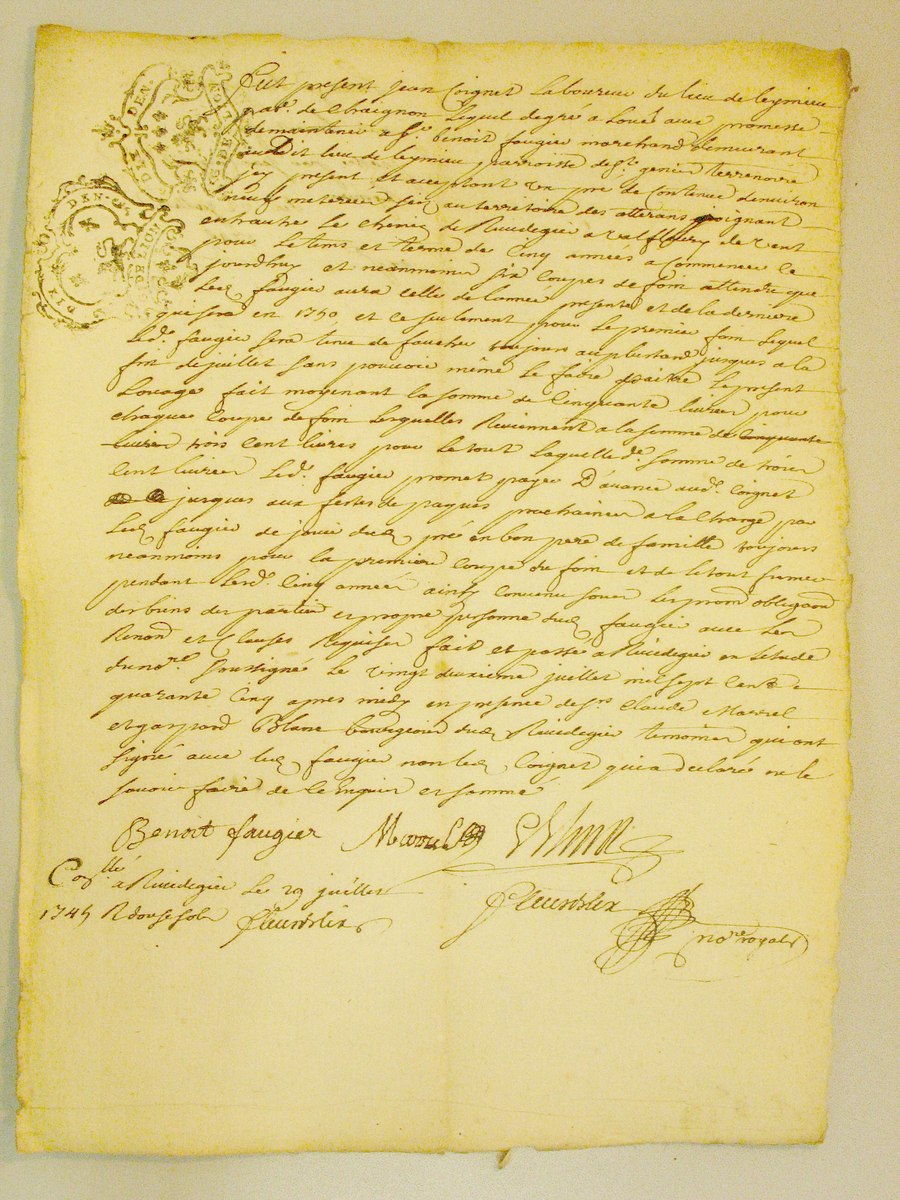 DIX DEN.
G. DE LION
DIX DEN.
G. DE LION
Fut present jean Coignet Laboureur du lieu de leymieu
par.se de Chaignon Lequel de gré a Loué avec promesse
de maintenir a S.r benoit faugier marchand demeurant
audit lieu de leymieu parroisse de s.t genis terrenoire
jcy present et acceptant un pré de Contenue denviron
neuf meterée scis au territoire des joignant
entraute Le Chemin de Rivedegier a valfleury de vent
pour Le tems et terme de Cinq années a Commencer Ce
jourdhuy et neanmoins six Coupes de foin attendu que
Led. faugier aura Celle de Lannee presente et de la derniere
qui sera en 1750 et Ce seulement pour Le premier foin Lequel
Led. faugier sera tenu de faucher toujours au plustard jusques a la
fin de juillet sans pouvoir même Le faire paitre Le present
Louage fait moyenant la somme de Cinquante livres pour
chaque Coupe de foin Lesquelles Reviennent a la somme de Cinquante
livres trois Cent livres pour Le tout Laquelle d. somme de trois
Cent livres Led. faugier promet payer D'avance aud. Coignet
jusques aux festes de paques prochaines a la Charge par
Led. faugier de jouir dud. pré en bon pere de famille toujours
neanmoins pour la premiere Coupe du foin et de le tout fumer
pendant Lesd. Cinq années ainsy Convenu sous Les prom. obligaon
des biens des parties et propre personne dud. faugier avec Les
Renon.on et Clauses Requises fait et passé a Rivedegier en Letude
du no.re soussigné Le vingt deuxieme juillet mil sept Cent
quarante Cinq apres midy en presence des s.rs Claude Marrel
et gaspard Blanc bourgeois dud. Rivedegier temoins qui ont
signé avec led. faugier non led. Coignet qui a declaré ne le
savoir faire de Ce Enquis et sommé
Benoit faugier
Con.llé a Rivedegier Le 29 juillet
1745 R douse sols fleurdelix
fleurdelix
no.re royal